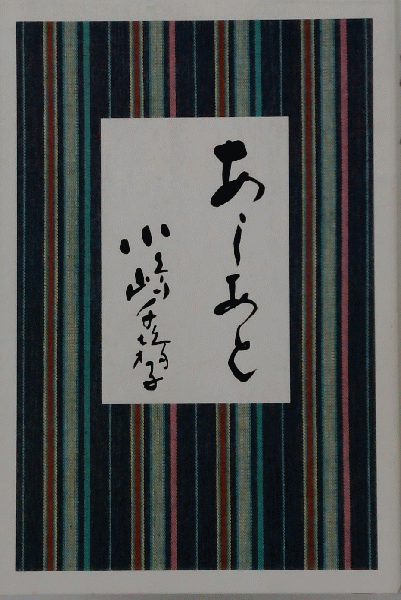 あしあと
小崎千鶴子